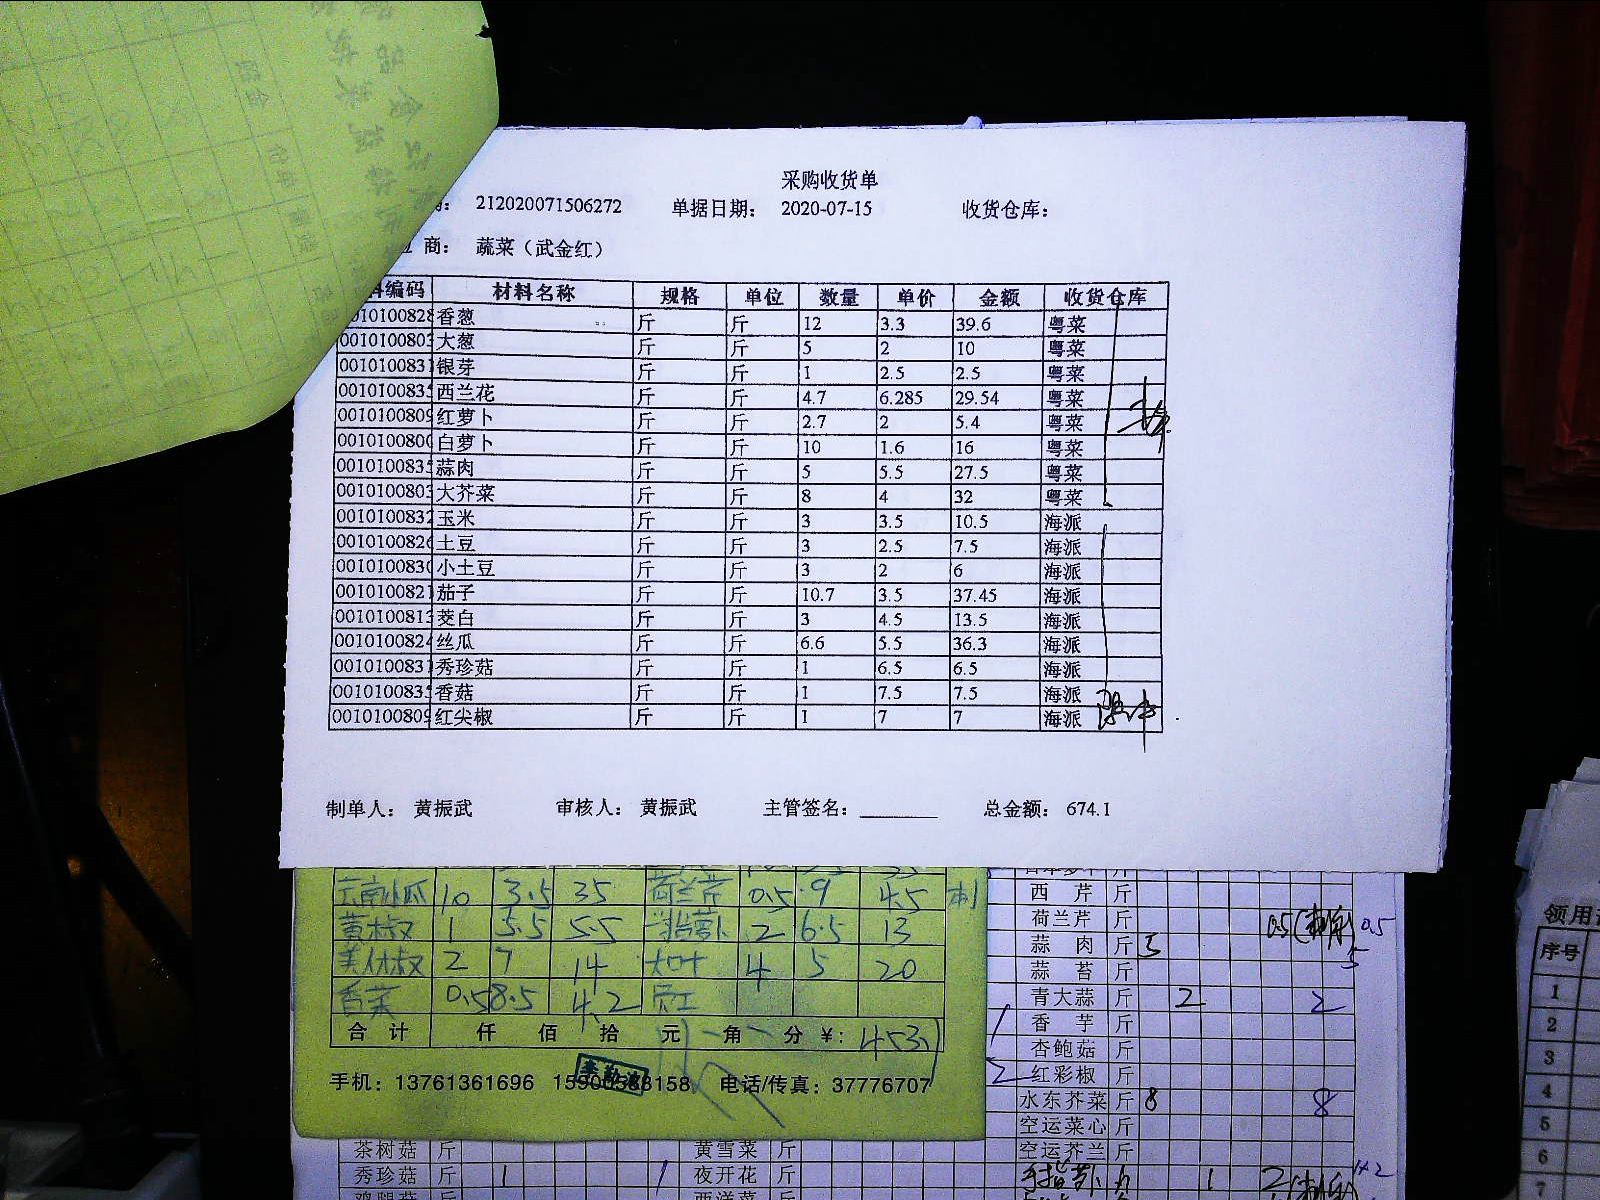 采购收货单
212020071506272 单据日期： 2020-07-15 收货仓库：
商： 蔬菜（武金红）
编码 材料名称 规格 单位 数量 单价 金额 收货仓库
香葱 斤 斤 12 3.3 39.6 粤菜
大葱 斤 斤 5 2 10 粤菜
银芽 斤 斤 1 2.5 2.5 粤菜
西兰花 斤 斤 4.7 6.285 29.54 粤菜
001010080 红萝卜 斤 斤 2.7 2 5.4 粤菜
001010080 白萝卜 斤 斤 10 1.6 16 粤菜
001010083 蒜肉 斤 斤 5 5.5 27.5 粤菜
001010080 大芥菜 斤 斤 8 4 32 粤菜
001010083 玉米 斤 斤 3 3.5 10.5 海派
001010082 土豆 斤 斤 3 2.5 7.5 海派
001010083 小土豆 斤 斤 3 2 6 海派
001010082 茄子 斤 斤 10.7 3.5 37.45 海派
001010081 茭白 斤 斤 3 4.5 13.5 海派
001010082 丝瓜 斤 斤 6.6 5.5 36.3 海派
001010083 秀珍菇 斤 斤 1 6.5 6.5 海派
001010083 香菇 斤 斤 1 7.5 7.5 海派
001010080 红尖椒 斤 斤 1 7 7 海派
制单人： 黄振武 审核人： 黄振武 主管签名： 总金额： 674.1
10 3.5 35 荷兰芹 0.5 9 4.5
黄椒 1 5.5 5.5 2 6.5 13
美人椒 2 7 14 大叶 4 5 20
香菜 0.5 8.5 4.2
合计 仟 佰 拾 元 角 分 ￥： 453
手机：13761361696 电话/传真：37776707
西芹 斤
荷兰芹 斤 0.5 0.5
蒜肉 斤 5 5
蒜苔 斤
青大蒜 斤 2 2
香芋 斤
杏鲍菇 斤
红彩椒 斤
水东芥菜 斤 8 8
空运菜心 斤
空运芥兰 斤
茶树菇 斤 黄雪菜 斤
秀珍菇 斤 1 夜开花 斤
领用
序号
1
2
3
4
5
6
7